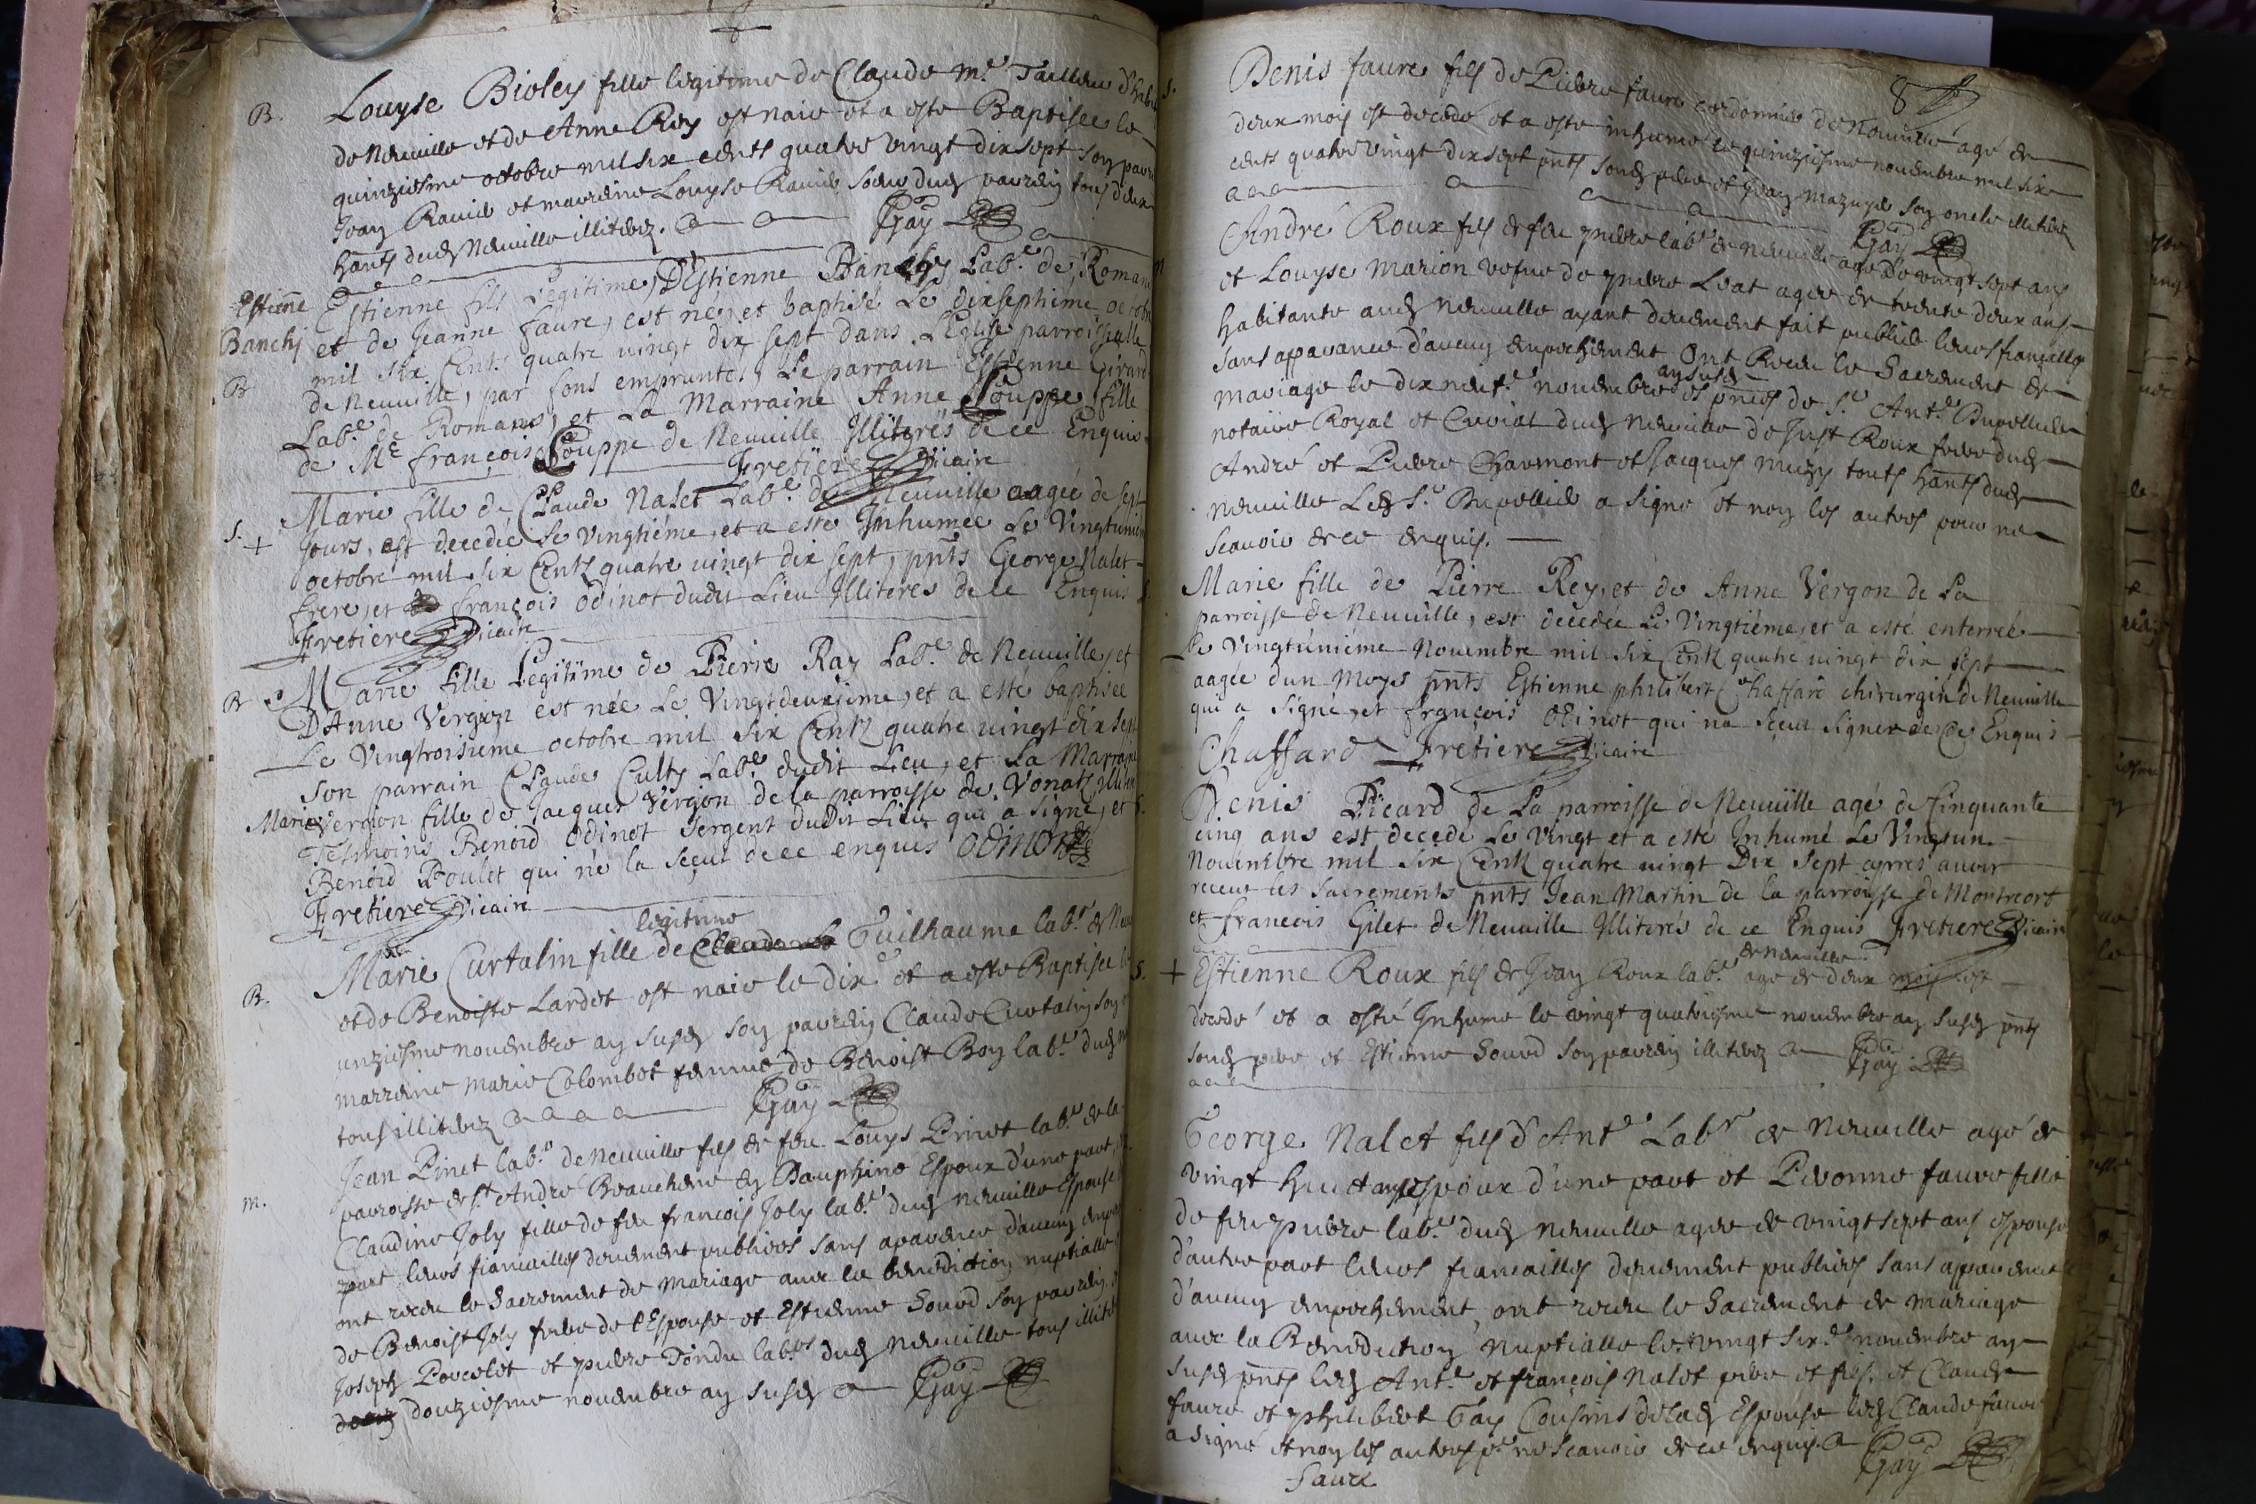 B. Louyse Bioley fille legitime de Claude Mᵉ Tailleur d'habits
de Neuville et de Anne Rey est naie et a este Baptisee le
quinziesme octobre mil six cents quatre vingt dix sept son parrin
Jean Ravier et marreine Louyse Ravier soeur dud parrein tous deux
hants dud Neuville illiterez. Gay
Estienne Banchy
B
Estienne fils Legitime D'Estienne Banchy Labʳ de Romans
et de Jeanne faure, est né, et baptisé Le dixseptiéme octobre
mil six Cent quatre vingt dix sept dans L'Eglise parroissialle
de Neuville, par fons empruntes, Le parrain Estienne Girard
Labʳ de Romans, et La Marraine Anne Couppe, fille
de Mᵉ françois Couppe de Neuville Illiterés de ce Enquis
Fretiere vicaire
S. + Marie fille de Claude Nalet Labʳ de Neuville aagée de sept
jours, est decedée Le vingtiéme, et a esté Inhumée Le Vingtunieme
octobre mil six Cents quatre vingt dix sept, pnts George Nalet
frere, et françois Odinot dudit Lieu Illiteres de ce Enquis
Fretiere vicaire
B Marie fille Legitime de Pierre Ray Labʳ de Neuville, et
D'Anne Vergion est née Le Vingtdeuxieme, et a esté baptisée
Le Vingtroisieme octobre mil six Cents quatre vingt dix sept
son parrain Claude Cults Labʳ dudit Lieu, et La Marraine
Marie Vergion fille de Jacques Vergon de la parroisse de Vonats Illiteres
Tesmoins Benoid Odinot Sergent dudit Lieu qui a signé, et
Benoid Poulet qui ne la sçeut de ce enquis Odinot
Fretiere Vicaire
legitime
B. Marie Curtalin fille de Guilhaume labʳ de Neuville
et de Benoiste Lardet est naie le dixᵉ et a este Baptisee le
unziesme novembre an susd son parrein Claude Curtalin son
marreine Marie Colombet femme de Benoist Boy labʳ dud
tous illiterez Gay
m. Jean Pinet labʳ de Neuville fils de feu Louys Pinet labʳ de la
parroisse de Sᵗ Andre en Dauphiné Espoux d'une part, et
Claudine Joly fille de feu francois Joly labʳ dud Neuville Espouse
part leurs fiancailles deuement publiees sans aparence d'aucun
ont receu le Sacrement de Mariage avec la benediction nuptialle
de Benoist Joly frere de l'Espouse et Estienne Sourd son parrein
Joseph Porcelet et pierre Tondu labʳˢ dud Neuville tous illiterez
douziesme novembre an susd Gay
8
S. Denis faure fils de Pierre faure cordonnier de Neuville agé de
deux mois est decede et a este inhumé le quinziesme novembre mil six
cents quatre vingt dix sept pnts sond pere et Jean Mazuyer son oncle illiterez
Gay
m André Roux fils de feu pierre labʳ de Neuville agé de vingt sept ans
et Louyse Marion vefve de pierre Loat agee de trente deux ans
habitante aud Neuville ayant deuement fait publier leurs fiancailles
sans apparance d'aucun empechement Ont Receu le Sacrement de
an susd
mariage le dix neufᵉ novembre es pnces de Sʳ Antᵉ
notaire Royal et Curial dud Neuville de Just Roux frere dud
André et Pierre Charmont et Jacques Muzy touts hants dud
Neuville Led Sʳ a signé et non les autres pour ne
scavoir de ce enquis.
Marie fille de Pierre Rey, et de Anne Vergon de La
parroisse de Neuville, est decedée Le Vingtiéme, et a esté enterrée
Le Vingtunieme Novembre mil six Cents quatre vingt dix sept
aagée d'un Moys pnts Estienne philibert Chaffard chirurgin de Neuville
qui a signé, et françois Odinot qui na sçeut signer de ce Enquis
Chaffard Fretiere Vicaire
S. Denis Picard de La parroisse de Neuville agé de Cinquante
cinq ans est decedé Le Vingt et a esté Inhumé Le Vingtun
Novembre mil six Cents quatre vingt Dix Sept apres avoir
receut les Sacrements pnts Jean Martin de la parroisse de Montreort
et francois Gilet de Neuville Illiterés de ce Enquis Fretiere Vicaire
de Neuville
S. + Estienne Roux fils de Jean Roux labʳ agé de deux mois est
decedé et a esté Inhumé le vingt quatriesme novembre an susd pnts
sond pere et Estienne Sourd son parrein illiterez Gay
George Nalet fils d'Antᵉ Labʳ de Neuville agé de
vingt huict ans espoux d'une part et Pivonne faure fille
de feu pierre labʳ dud Neuville agee de vingt sept ans espouse
d'autre part leurs fiancailles deuement publiees sans apparence
d'aucun empechement, ont receu le Sacrement de Mariage
avec la Benediction Nuptialle le vingt sixᵉ novembre an
susd pnts lesd Antᵉ et françois Nalet pere et fils, et Claude
faure et philibert Gay Cousins de lad Espouse led Claude faure
a signé et non les autres pʳ ne scavoir de ce enquis. Gay
faure